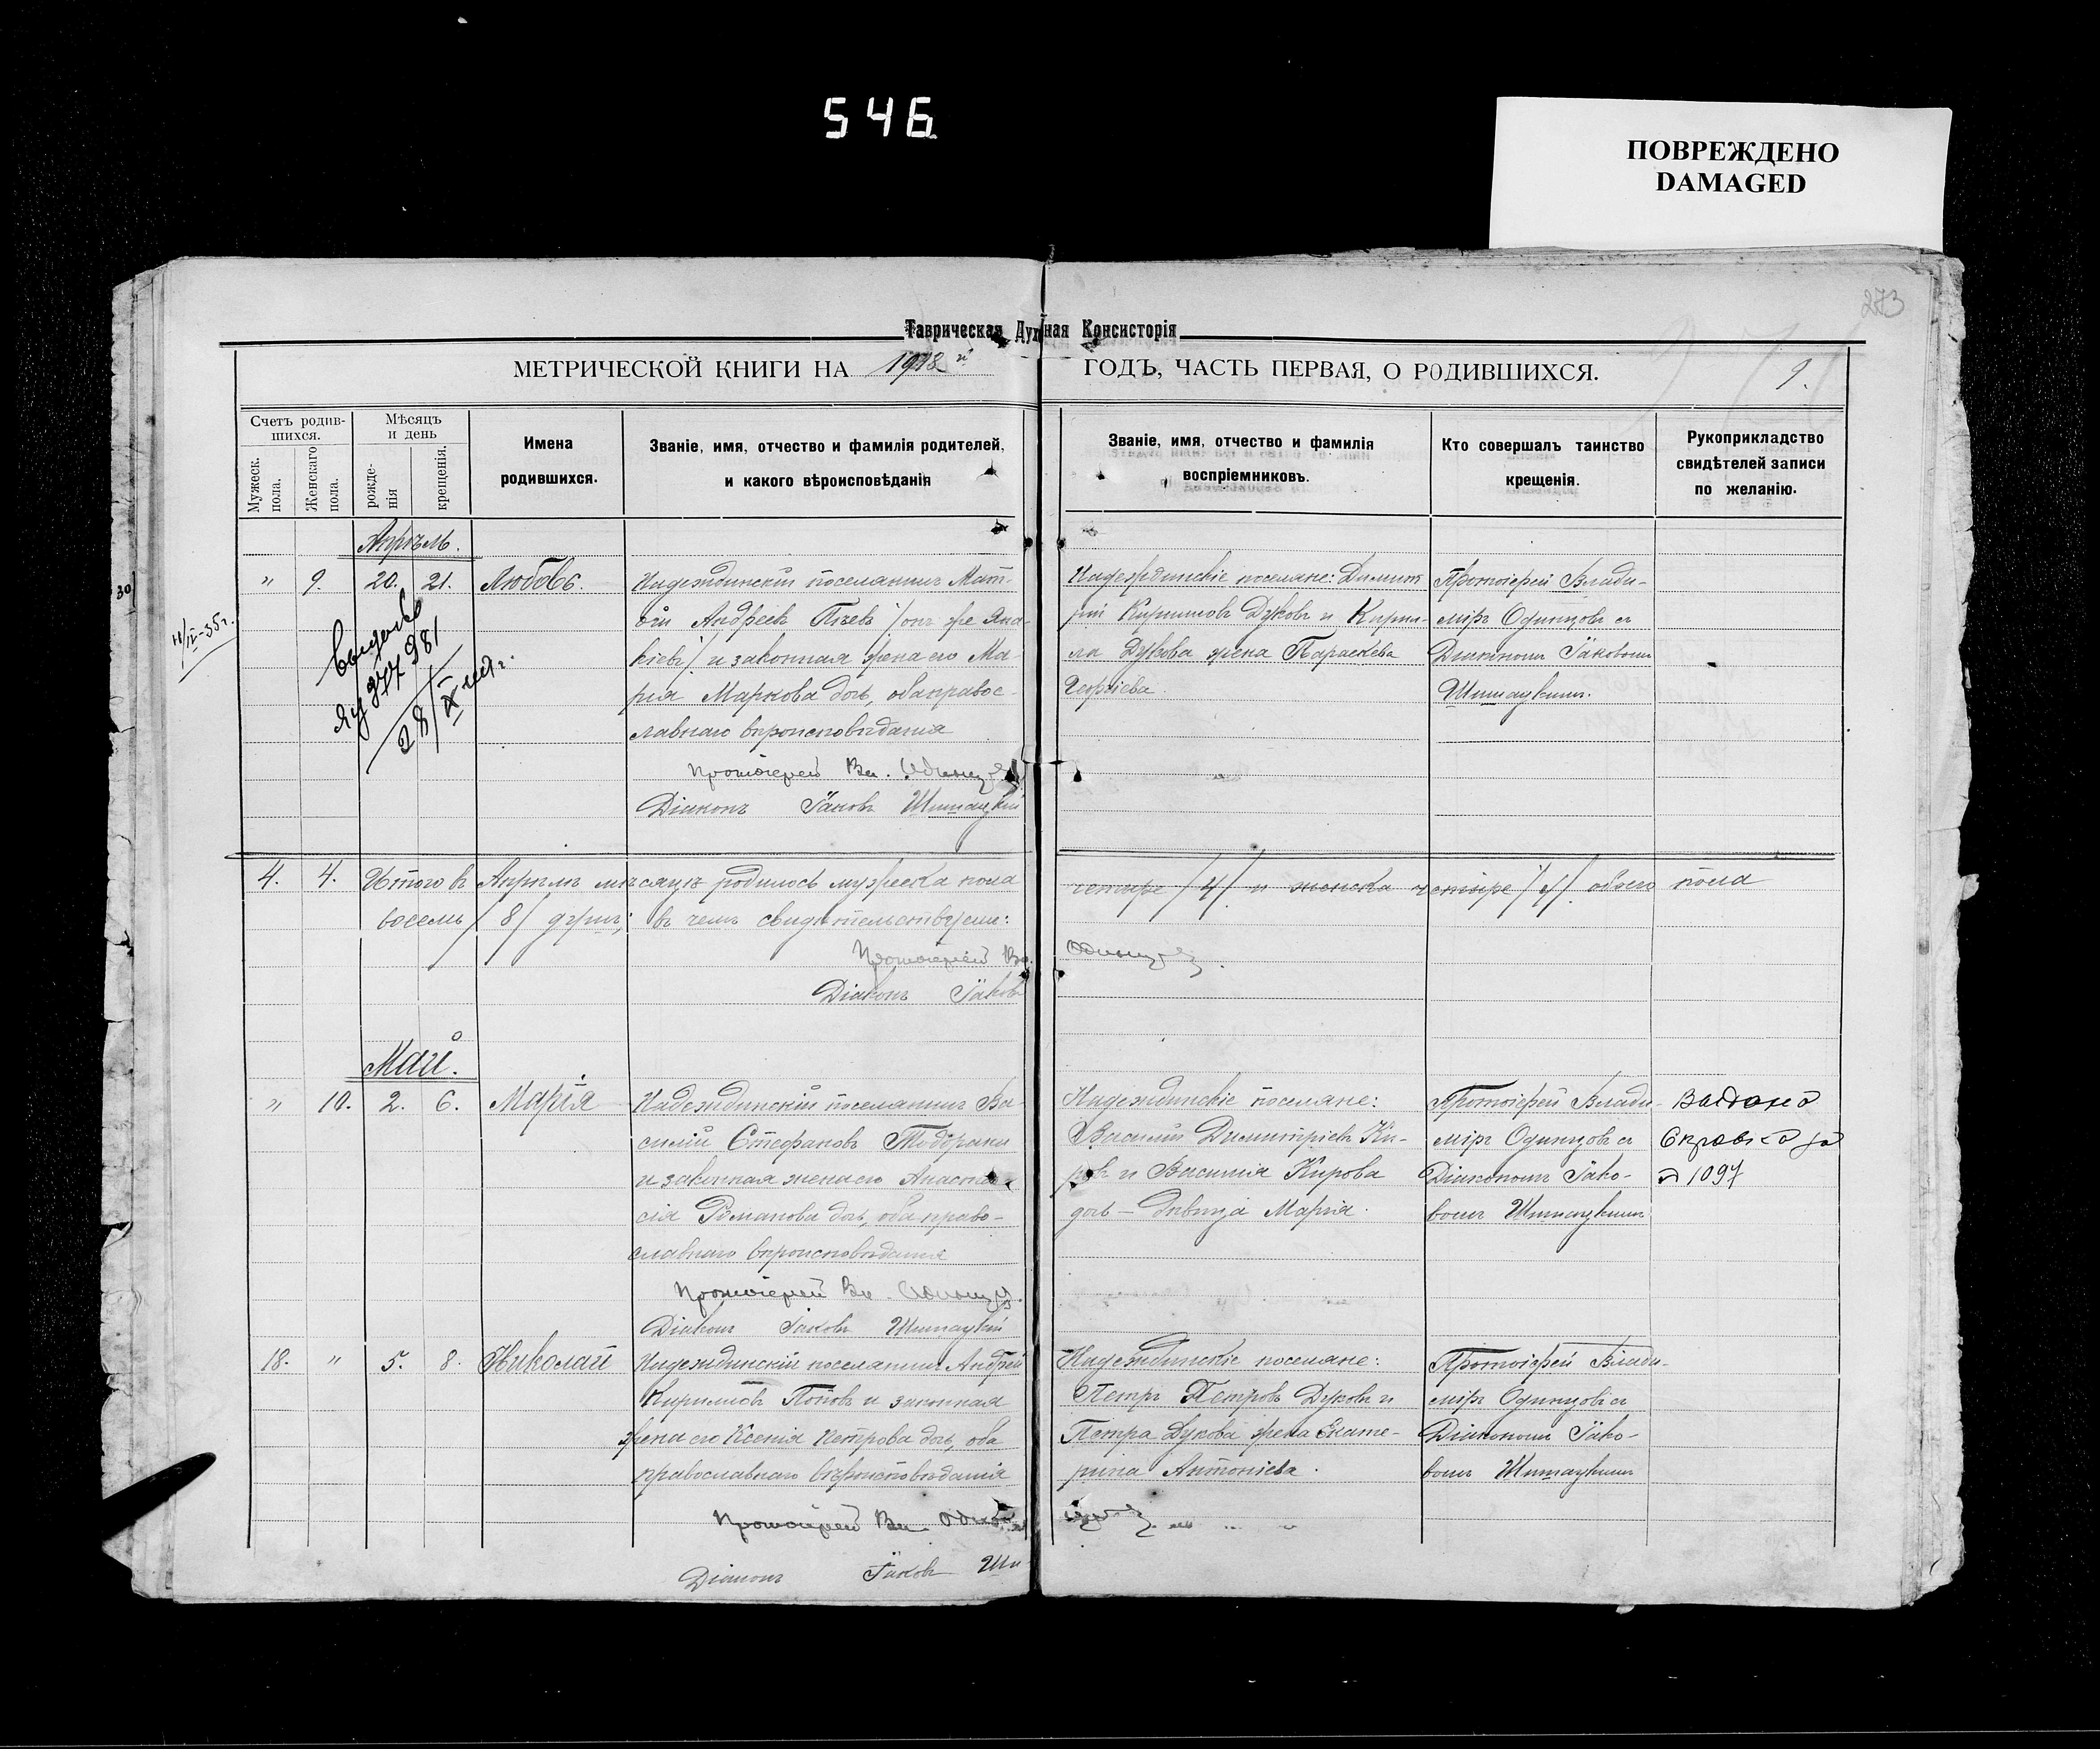 546
ПОВРЕЖДЕНО
DAMAGED
273
Таврическая Духовная Консисторія
МЕТРИЧЕСКОЙ КНИГИ НА 1918 й ГОДЪ, ЧАСТЬ ПЕРВАЯ, О РОДИВШИХСЯ.
9.
Счетъ родив-
шихся.
Мужеск.
пола.
Женскаго
пола.
Мѣсяцъ
и день
рожде-
нія
крещенія.
Имена
родившихся.
Званіе, имя, отчество и фамилія родителей,
и какого вѣроисповѣданія
Званіе, имя, отчество и фамилія
воспріемниковъ.
Кто совершалъ таинство
крещенія.
Рукоприкладство
свидѣтелей записи
по желанію.
30
Апрѣль.
" 9. 20. 21. Любовь.
Надеждинскій поселянинъ Мат-
ѳей Андреевъ /онъ же
/ и законная жена его Ма-
рія Маркова дочь, оба правос-
лавнаго вѣроисповѣданія
Протоіерей Вл. Одинцовъ
Діаконъ Іаковъ Шишацкій
Надеждинскіе поселяне: Димит-
рій Кирилловъ Дуковъ и Кирил-
ла Дукова жена Параскева
Георгіева
Протоіерей Влади-
міръ Одинцовъ съ
Діакономъ Іаковомъ
Шишацкимъ.
11/IV-35г.
выдано
381
28/X
4. 4. Итого въ Апрѣлѣ мѣсяцѣ родилось мужеска пола четыре /4/ и женска четыре /4/. обоего пола
восемь /8/ душъ; въ чемъ свидѣтельствуемъ:
Протоіерей Вл. Одинцовъ.
Діаконъ Іаковъ
Май.
" 10. 2. 6. Марія
Надеждинскій поселянинъ Ва-
силій Стефановъ Тодоранъ
и законная жена его Анаста-
сія Романова дочь, оба право-
славнаго вѣроисповѣданія
Протоіерей Вл. Одинцовъ
Діаконъ Іаковъ Шишацкій
Надеждинскіе поселяне:
Василій Димитріевъ Ки-
ровъ и Василія Кирова
дочь - дѣвица Марія.
Протоіерей Влади-
міръ Одинцовъ съ
Діакономъ Іако-
вомъ Шишацкимъ
Выдана
Справка за
№ 1097
18. " 5. 8. Николай
Надеждинскій поселянинъ Андрей
Кирилловъ Поповъ и законная
жена его Ксенія Петрова дочь, оба
православнаго вѣроисповѣданія
Протоіерей Вл. Одинцовъ
Діаконъ Іаковъ Ши
Надеждинскіе поселяне:
Петръ Петровъ Дуковъ и
Петра Дукова жена Екате-
рина Антоніева.
Протоіерей Влади-
міръ Одинцовъ съ
Діакономъ Іако-
вомъ Шишацкимъ